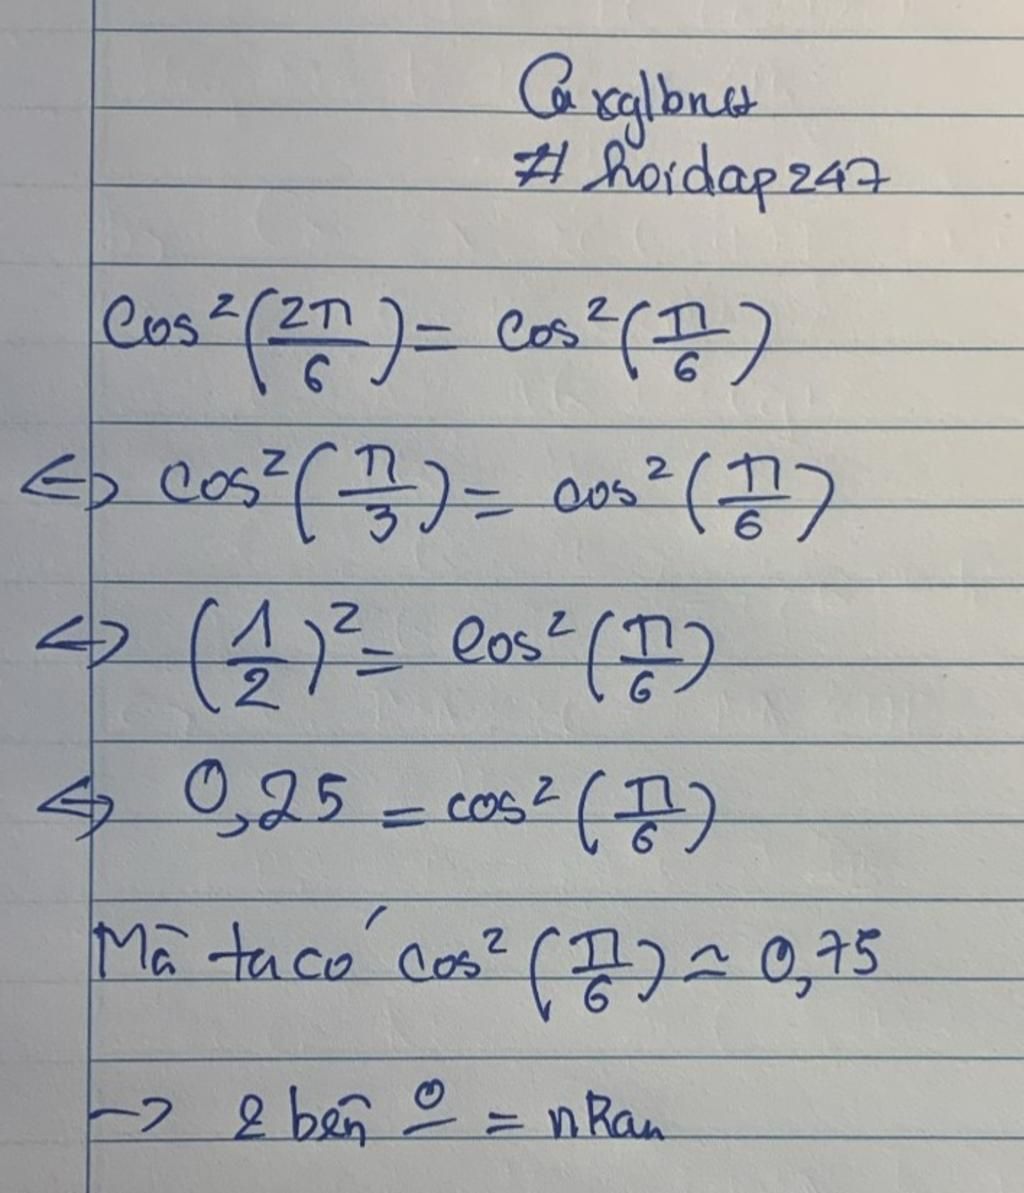 # hoidap247
cos²(2π/6) = cos²(π/6)
<=> cos²(π/3) = cos²(π/6)
<=> (1/2)² = cos²(π/6)
<=> 0,25 = cos²(π/6)
Mà ta có cos²(π/6) ≃ 0,75
-> 2 bên = nhau